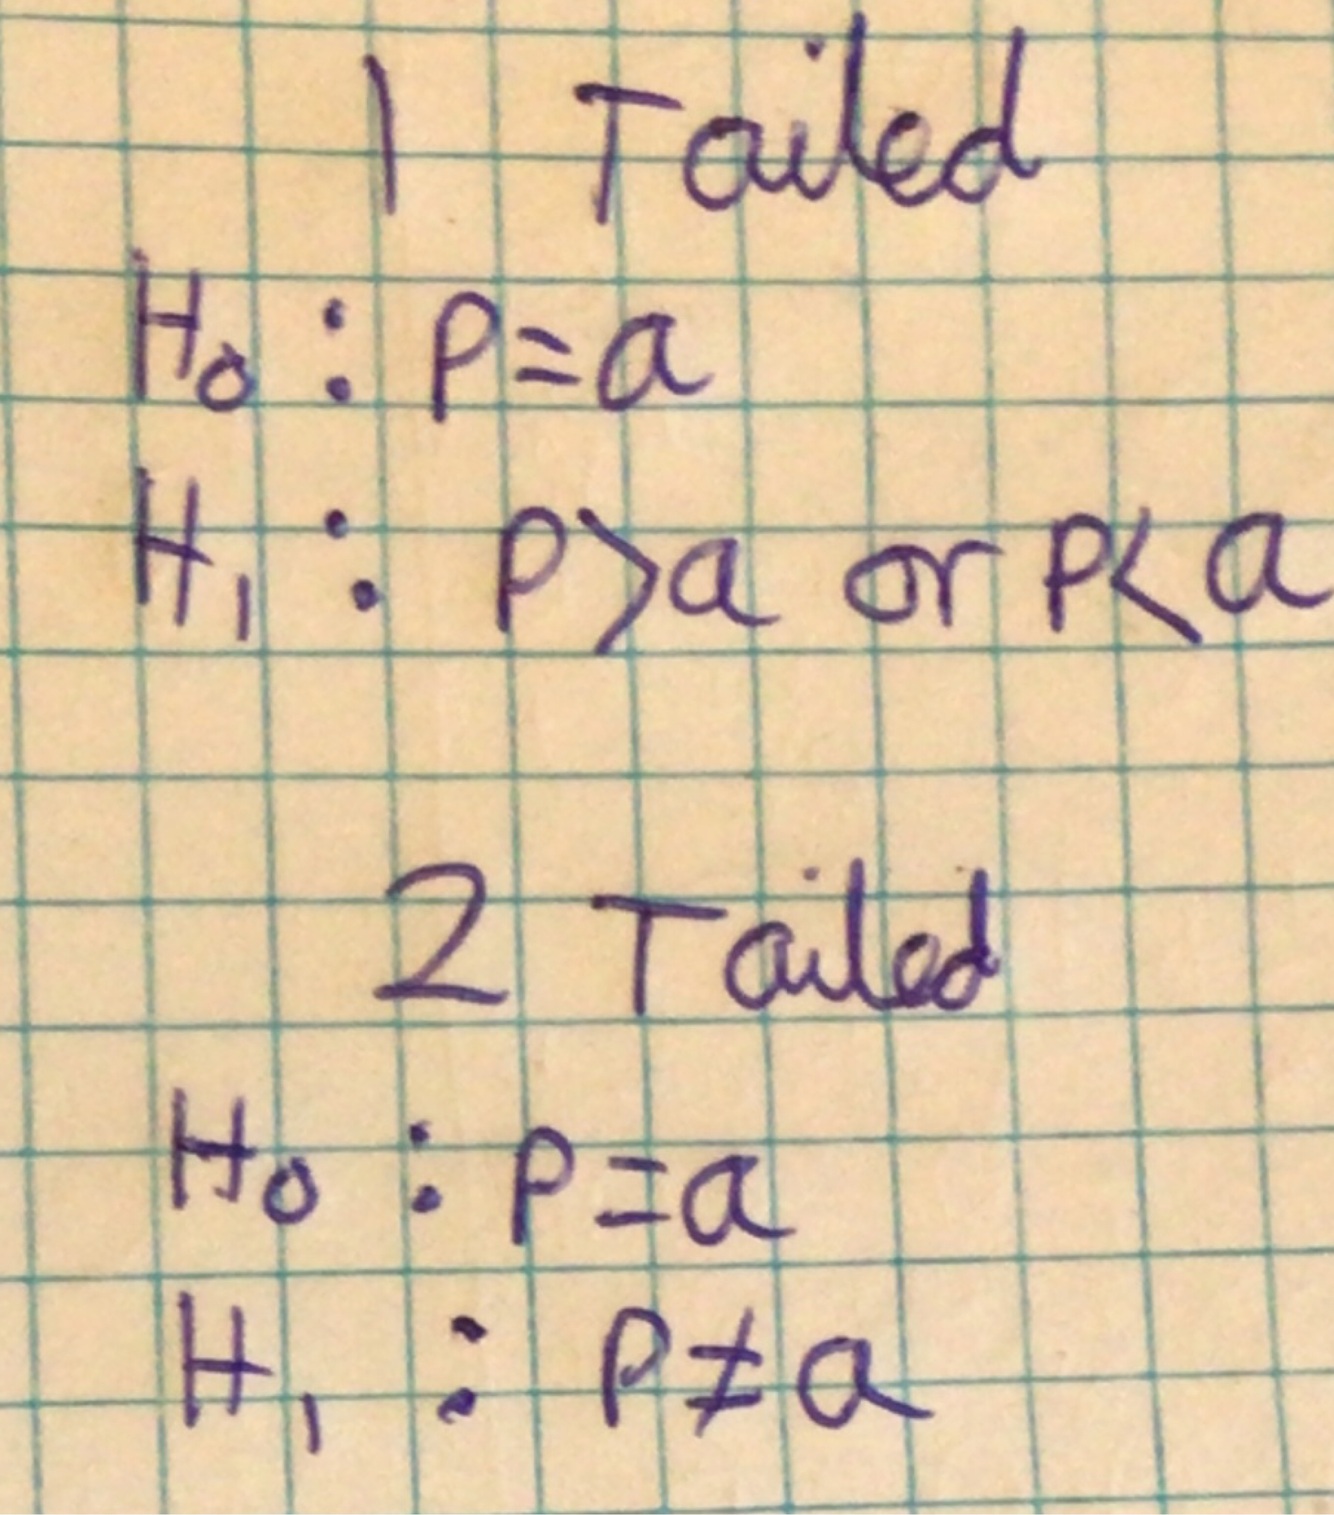 1 Tailed
H₀ : P=a
H₁ : P>a or P<a
2 Tailed
H₀ : P=a
H₁ : P≠a